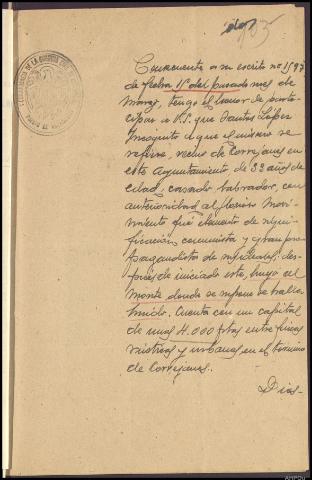 Consecuente a su escrito nº 1597
de fecha 15 del pasado mes de
Marzo, tengo el honor de parti-
cipar a V.S. que Santos López
Incógnito a que el mismo se
refiere, vecino de Correjanes en
este Ayuntamiento de 33 años de
edad, casado labrador, con
anterioridad al glorioso Movi-
miento fué elemento de signi-
ficación comunista y gran pro-
pagandista de sus ideales; des-
pués de iniciado este, huyó al
monte donde se supone se halla
unido. Cuenta con un capital
de unas 4.000 ptas entre fincas
rústicas y urbanas en el término
de Correjanes.
Dios-